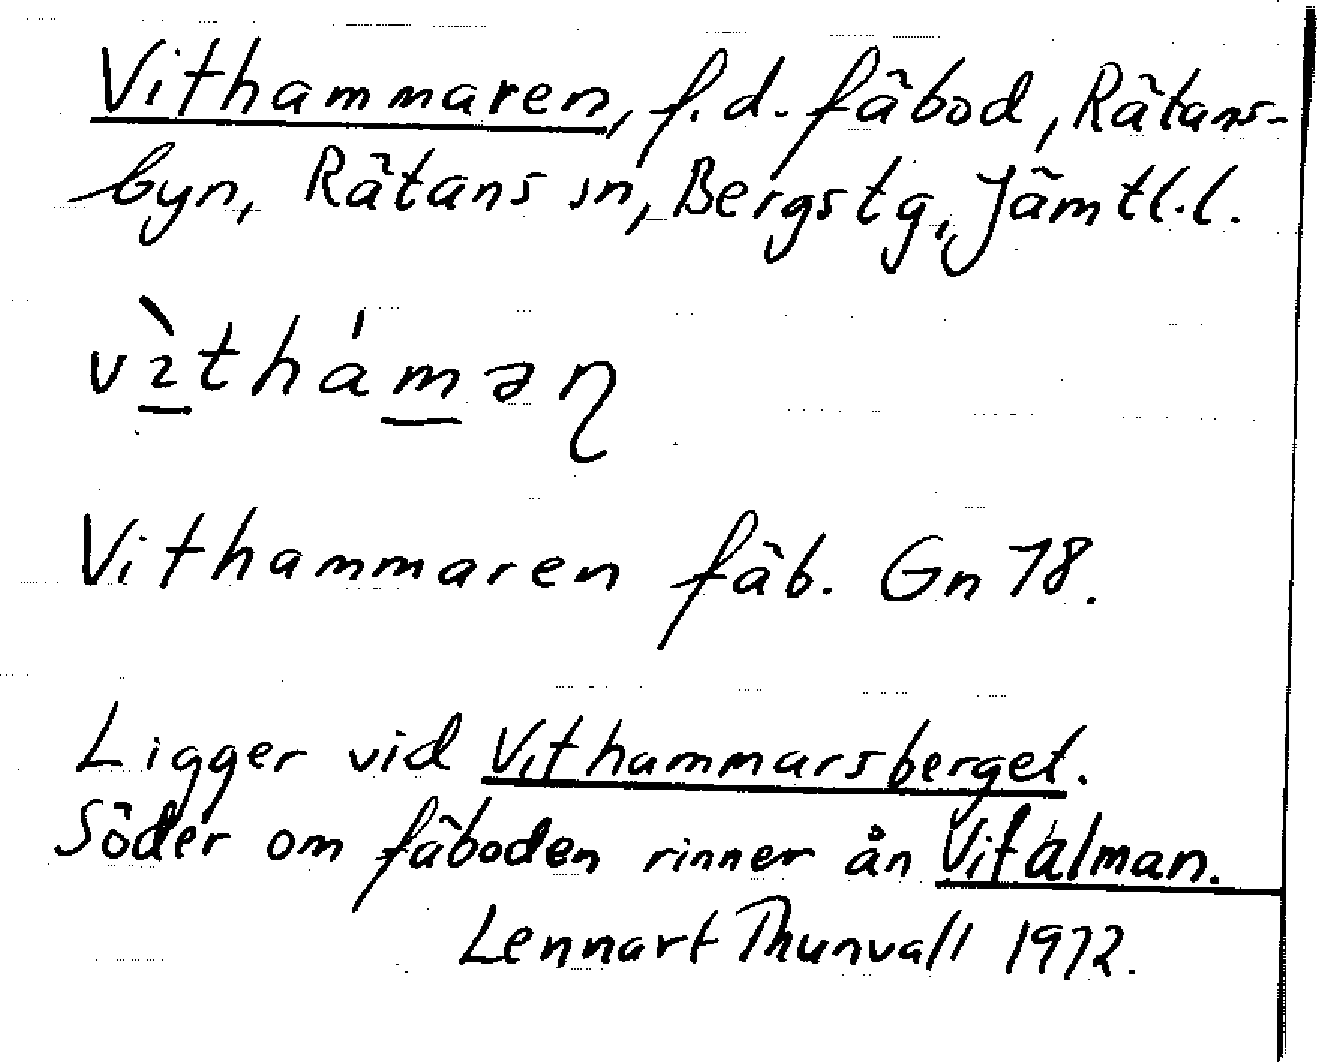 Vithammaren, f.d. fäbod, Rätans-
byn, Rätans sn, Bergs tg, Jämtl.l.
vɪ̀tháməɳ
Vithammaren fäb. Gn 78.
Ligger vid Vithammarsberget.
Söder om fäboden rinner ån Vitalman.
Lennart Thunvall 1972.